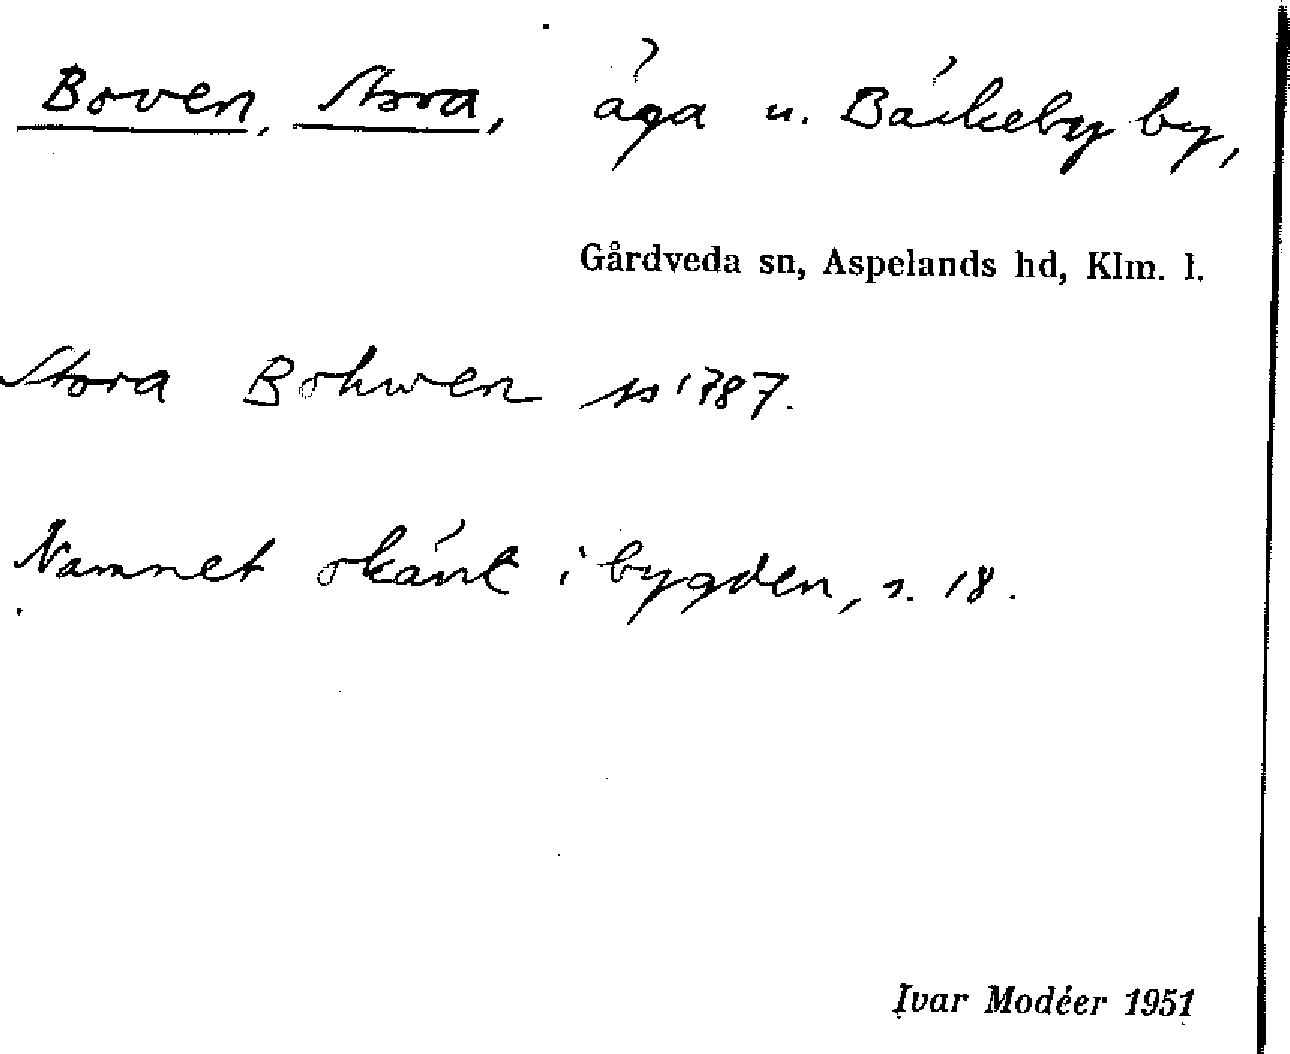 Boven, Stora, äga u. Bäckeby by,
Gårdveda sn, Aspelands hd, Klm. l.
Stora Bohwen 1787.
Namnet okänt i bygden, s. 18.
Ivar Modéer 1951